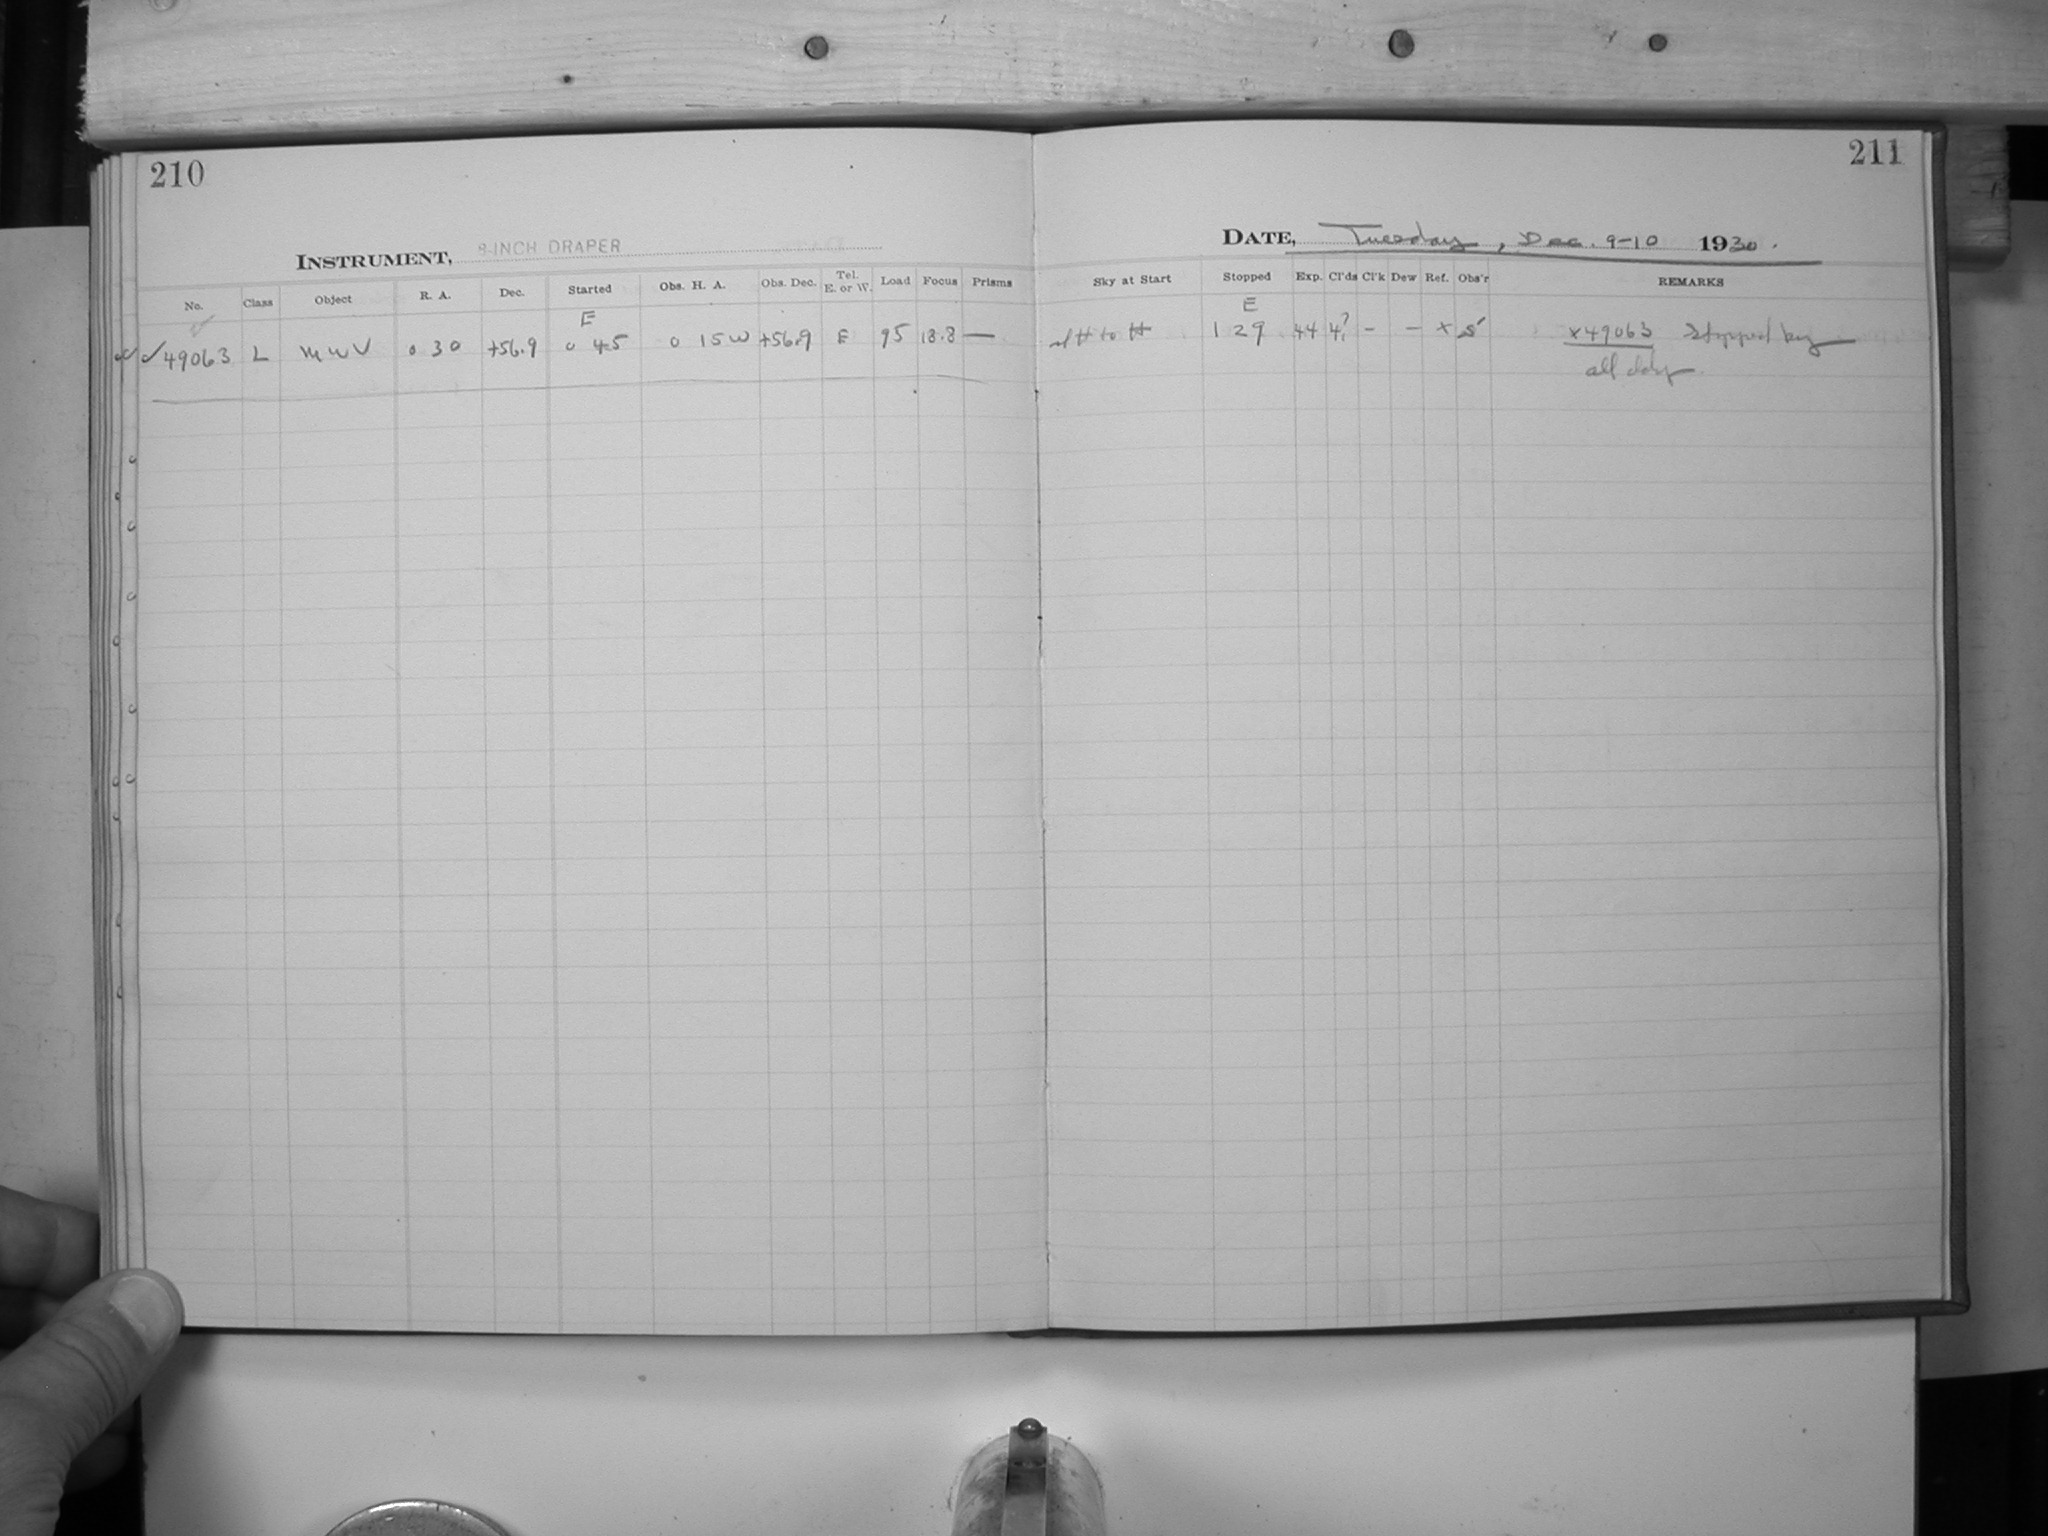 210
211
INSTRUMENT, 8-INCH DRAPER
DATE, Tuesday, Dec. 9-10 1930.
No. Class Object R. A. Dec. Started Obs. H. A. Obs. Dec. Tel. E. or W. Load Focus Prisms Sky at Start Stopped Exp. Cl'ds Cl'k Dew Ref. Obs'r REMARKS
E E
49063 L MWV 0 30 +56.9 0 45 0 15 W +56.9 E 95 18.8 — to 1 29 44 4? - - x S x49063 Stopped by
all cldy.